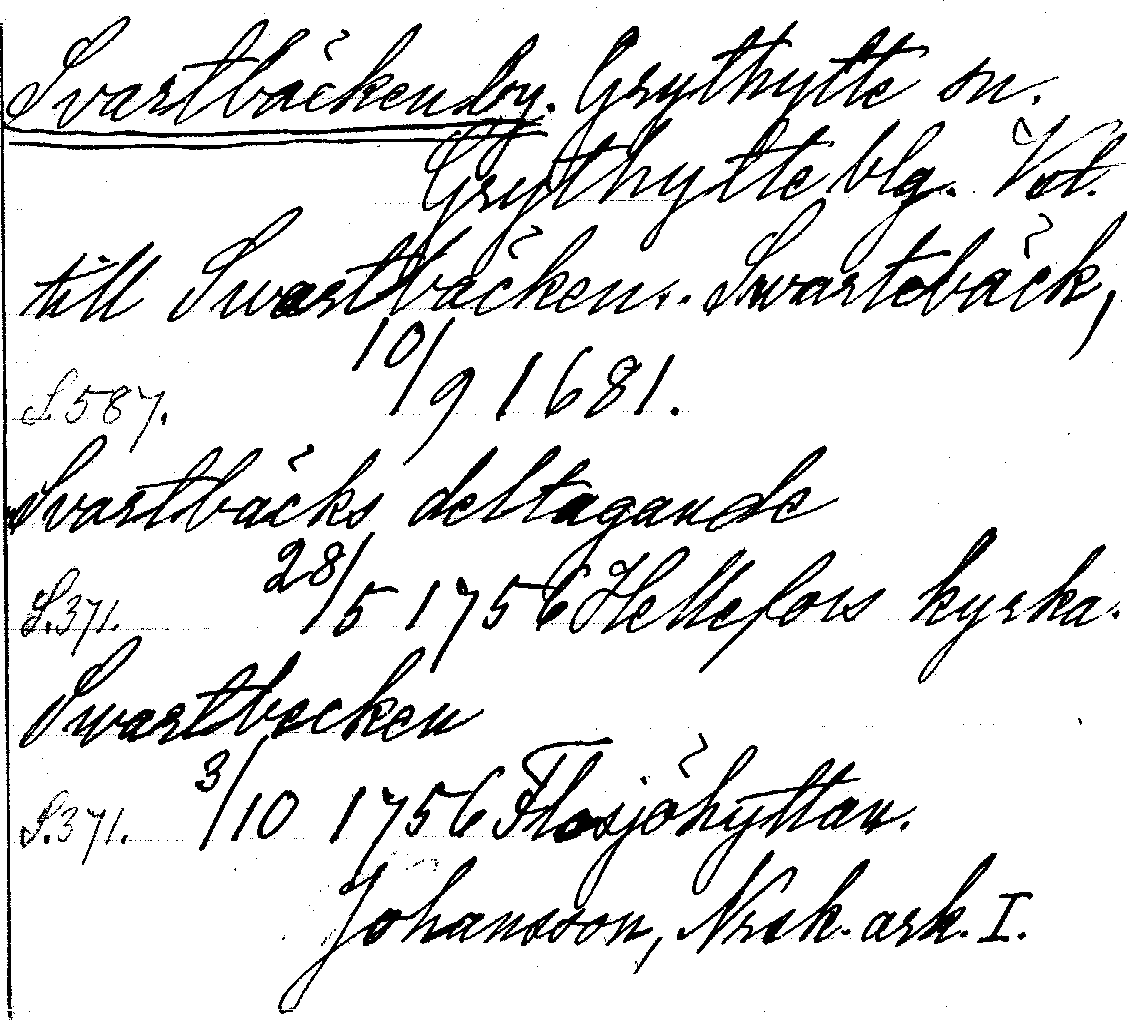 Svartbäcken, by. Grythytte sn.
Grythytte blg. Vol.
till Swartbäcken.. Swartebäck,
S. 587. 10/9 1681.
Svartbäcks deltagande
S. 371. 28/5 1756 Hellefors kyrka.
Swartbecken
S. 371. 3/10 1756 Flosjöhyttan.
Johansson, Nrsk. ark. I.